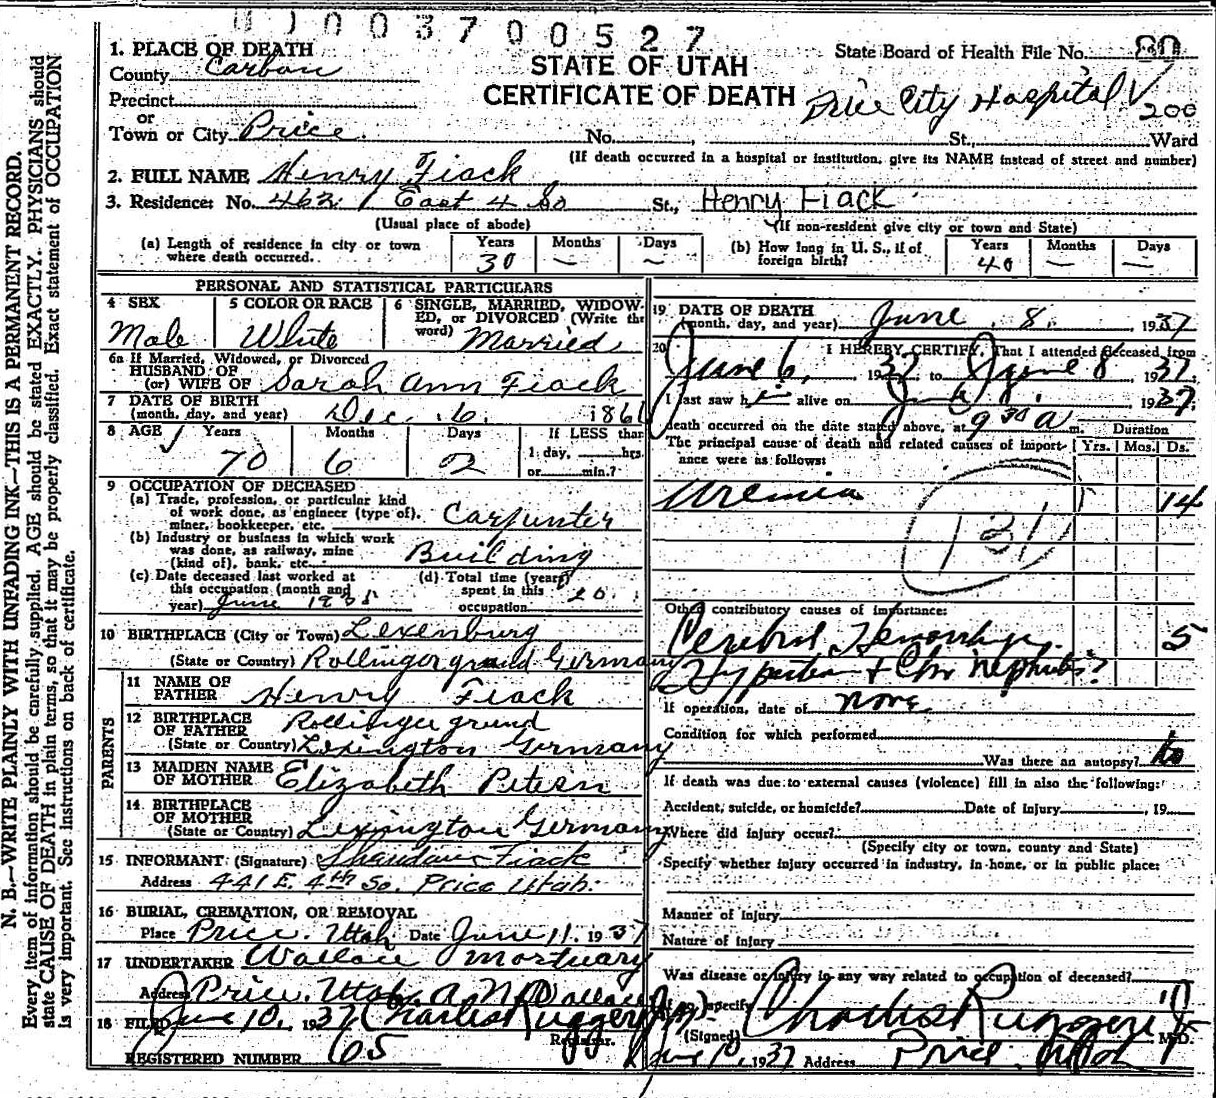 0 1 0 0 3 7 0 0 5 2 7
1. PLACE OF DEATH
State Board of Health File No. 80
County Carbon
STATE OF UTAH
Precinct
CERTIFICATE OF DEATH
Price City Hospital
200
or
Town or City Price No. , St., Ward
(If death occurred in a hospital or institution, give its NAME instead of street and number)
2. FULL NAME Henry Fiack
3. Residence: No. 462 East 4 So St., Henry Fiack
(Usual place of abode) (If non-resident give city or town and State)
(a) Length of residence in city or town where death occurred. Years 30 Months — Days —
(b) How long in U. S., if of foreign birth? Years 40 Months — Days —
PERSONAL AND STATISTICAL PARTICULARS
4 SEX Male
5 COLOR OR RACE White
6 SINGLE, MARRIED, WIDOW-
ED, or DIVORCED (Write the
word) Married
6a If Married, Widowed, or Divorced
HUSBAND OF
(or) WIFE OF Sarah Ann Fiack
7 DATE OF BIRTH
(month, day, and year) Dec. 6. 186
8 AGE Years 70 Months 6 Days 2
If LESS than
1 day, hrs.
or min.?
9 OCCUPATION OF DECEASED
(a) Trade, profession, or particular kind
of work done, as engineer (type of).
miner, bookkeeper, etc. Carpunter
(b) Industry or business in which work
was done, as railway, mine
(kind of), bank, etc. Building
(c) Date deceased last worked at
this occupation (month and
year) June
(d) Total time (years)
spent in this
occupation 20
10 BIRTHPLACE (City or Town) Lexenburg
(State or Country) Rollingergrund Germany
PARENTS
11 NAME OF
FATHER Henry Fiack
12 BIRTHPLACE
OF FATHER Rollinger grund
(State or Country) Lexington Germany
13 MAIDEN NAME
OF MOTHER Elizabeth Petersn
14 BIRTHPLACE
OF MOTHER
(State or Country) Lexington Germany
15 INFORMANT: (Signature) Fiack
Address 441 E. 4th So. Price Utah.
16 BURIAL, CREMATION, OR REMOVAL
Place Price, Utah Date June 11. 1937
17 UNDERTAKER Wallace Mortuary
Address Price, Utah. A N Wallace
18 FILED June 10, 1937 Charles Ruggeri
Registrar.
REGISTERED NUMBER 65
19 DATE OF DEATH
(month, day, and year) June 8. 1937
20 I HEREBY CERTIFY, That I attended deceased from
June 6, 1937 to June 8 1937.
I last saw him alive on June 8. 1937.
death occurred on the date stated above, at 9 30 A m. Duration
The principal cause of death and related causes of import-
ance were as follows: Yrs. Mos. Ds.
Uremia 14
131
Other contributory causes of importance:
Cerebral Hemorrhage 5
Hypertension + Chr Nephritis?
If operation, date of none
Condition for which performed
Was there an autopsy? No
If death was due to external causes (violence) fill in also the following:
Accident, suicide, or homicide? Date of Injury , 19
Where did injury occur?
(Specify city or town, county and State)
Specify whether injury occurred in industry, in home, or in public place:
Manner of Injury
Nature of Injury
Was disease or injury in any way related to occupation of deceased?
If so, specify
(Signed) Charles Ruggeri Jr M.D.
June 10, 1937 Address Price, Utah
N. B.—WRITE PLAINLY WITH UNFADING INK—THIS IS A PERMANENT RECORD.
Every item of information should be carefully supplied. AGE should be stated EXACTLY. PHYSICIANS should
state CAUSE OF DEATH in plain terms, so that it may be properly classified. Exact statement of OCCUPATION
is very important. See instructions on back of certificate.